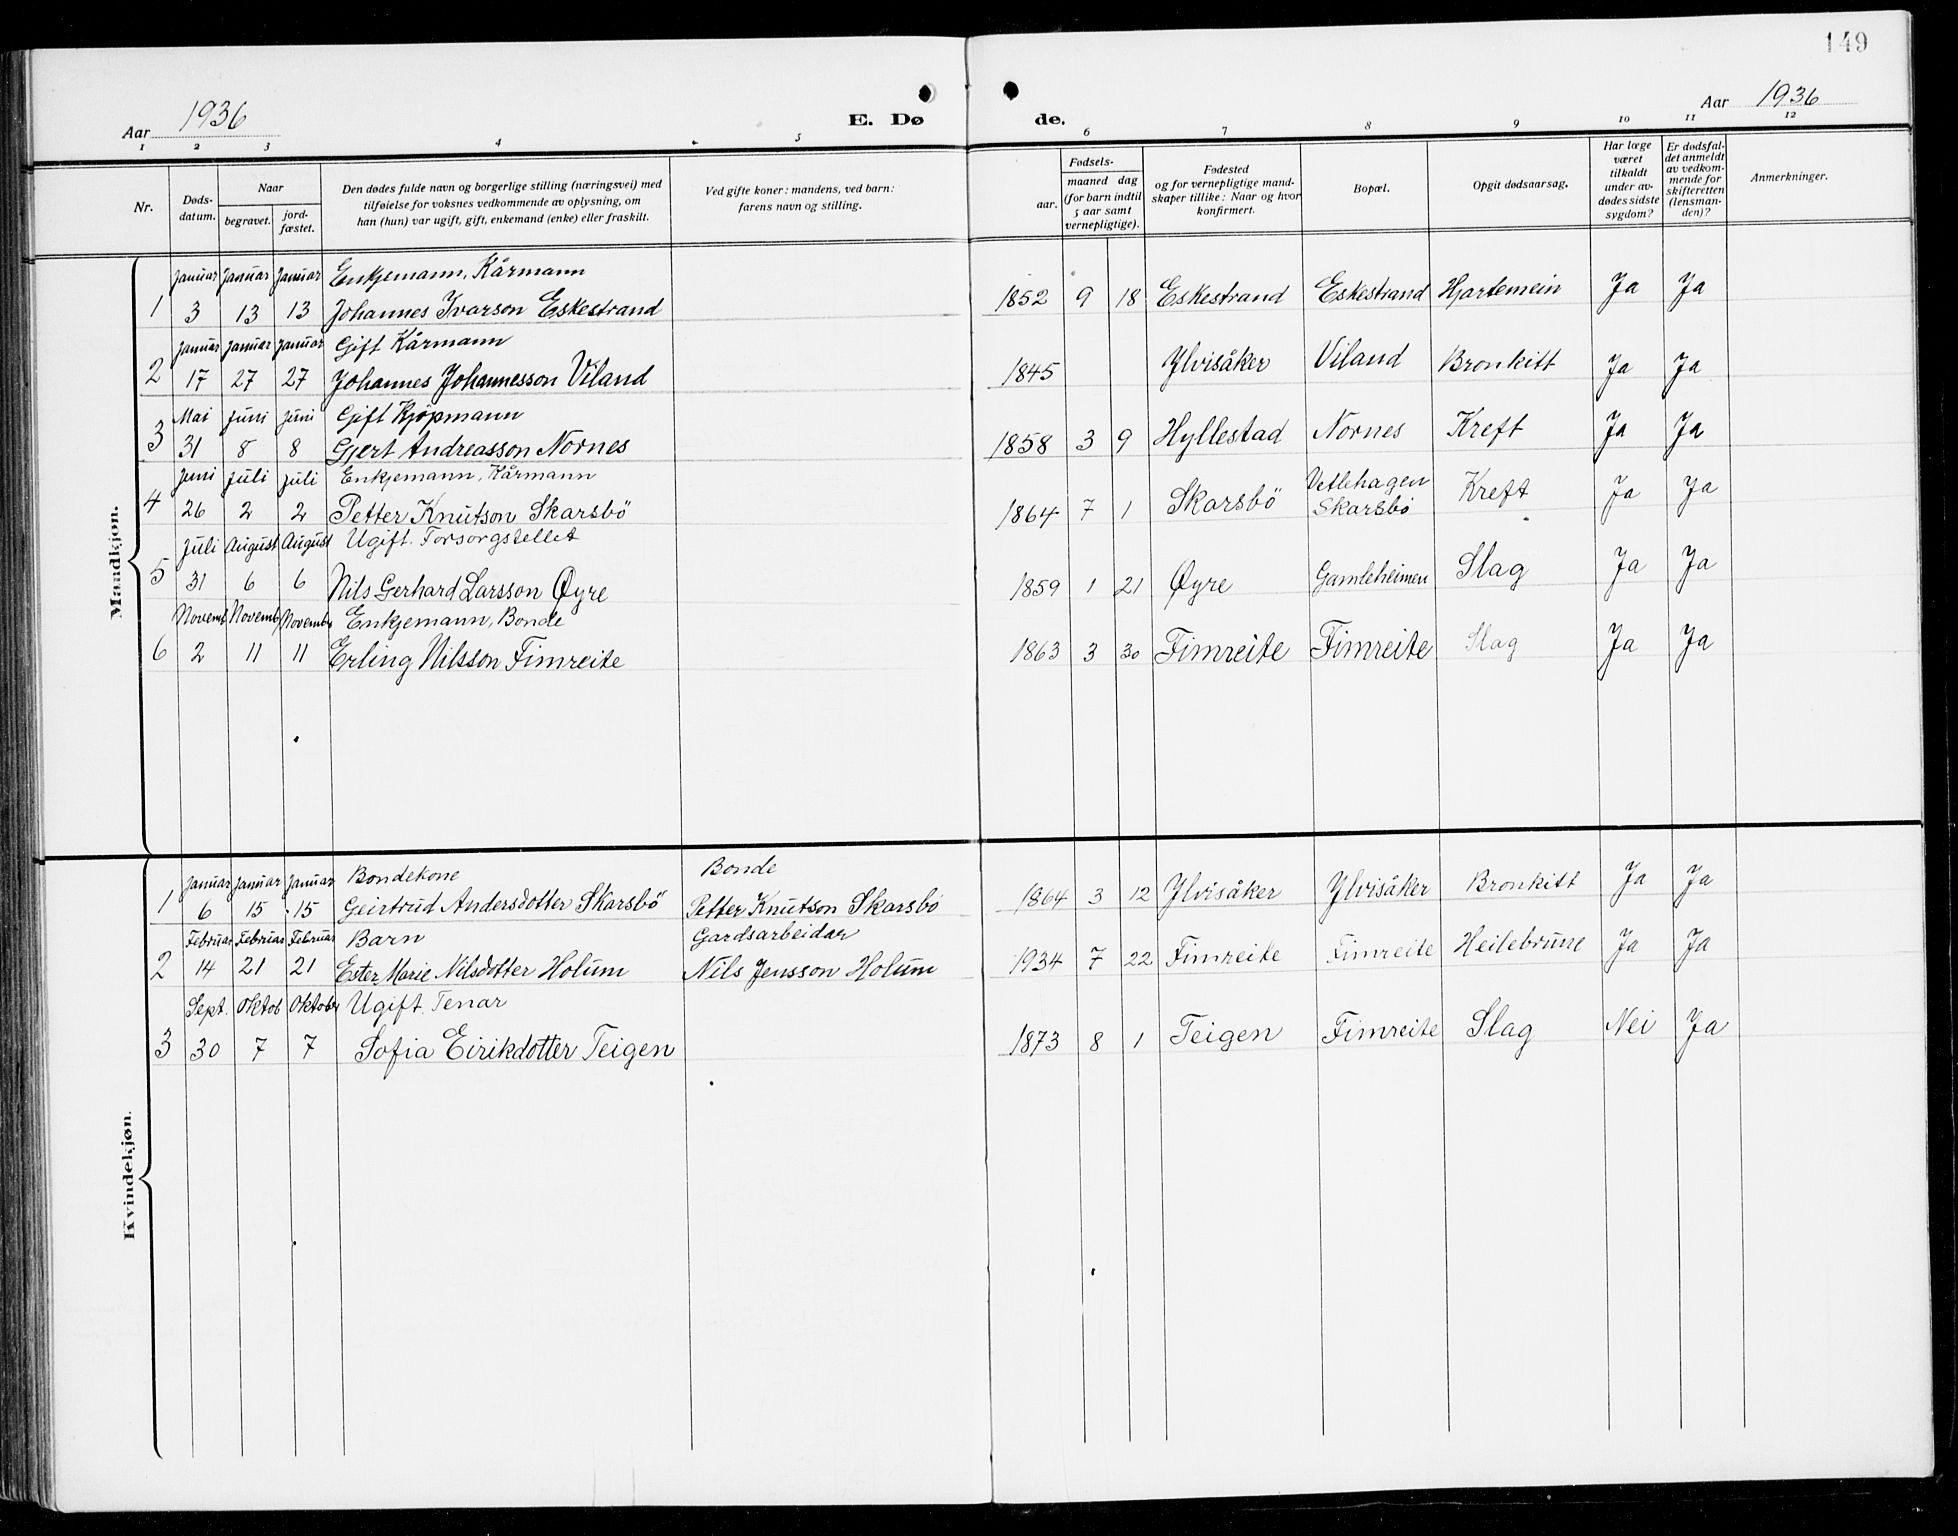 149
Aar 1936
E. Dø de.
Aar 1936
1 2 3 4 5 6 7 8 9 10 11 12
Nr.
Døds-datum.
Naar
begravet.
jord-fæstet.
Den dødes fulde navn og borgerlige stilling (næringsvei) med
tilføielse for voksnes vedkommende av oplysning, om
han (hun) var ugift, gift, enkemand (enke) eller fraskilt.
Ved gifte koner: mandens, ved barn:
farens navn og stilling.
Fødsels-
aar.
maaned dag
(for barn indtil
5 aar samt
vernepligtige).
Fødested
og for vernepligtige mand-
skaper tillike: Naar og hvor
konfirmert.
Bopæl.
Opgit dødsaarsag.
Har læge
været
tilkaldt
under av-
dødes sidste
sygdom?
Er dødsfal-
det anmeldt
av vedkom-
mende for
skifteretten
(lensman-
den)?
Anmerkninger.
Mandkjøn.
Januar Januar Januar Enkjemann, Kårmann
1 3 13 13 Johannes Ivarson Eskestrand 1852 9 18 Eskestrand Eskestrand Hjartemein Ja Ja
Januar Januar Januar Gift Kårmann
2 17 27 27 Johannes Johannesson Viland 1845 Ylvisåker Viland Bronkitt Ja Ja
Mai Juni Juni Gift Kjöpmann
3 31 8 8 Gjert Andreasson Nornes 1858 3 9 Hyllestad Nornes Kreft Ja Ja
Juni Juli Juli Enkjemann, Kårmann Vetlehagen
4 26 2 2 Petter Knutson Skarsbö 1864 7 1 Skarsbö Skarsbö Kreft Ja Ja
Juli August August Ugift. Forsorgstellet
5 31 6 6 Nils Gerhard Larsson Øyre 1859 1 21 Øyre Gamleheimen Slag Ja Ja
Novemb. Novemb. Novemb. Enkjemann, Bonde
6 2 11 11 Erling Nilsson Fimreite 1863 3 30 Fimreite Fimreite Slag Ja Ja
Kvindekjøn.
Januar Januar Januar Bondekone Bonde
1 6 15 15 Geirtrud Andersdotter Skarsbö Petter Knutson Skarsbö 1864 3 12 Ylvisåker Ylvisåker Bronkitt Ja Ja
Februar Februar Februar Barn Gardsarbeidar
2 14 21 21 Ester Marie Nilsdotter Holum Nils Jensson Holum 1934 7 22 Fimreite Fimreite Heilebrune Ja Ja
Sept. Oktob Oktober Ugift. Tenar
3 30 7 7 Sofia Eirikdotter Teigen 1873 8 1 Teigen Fimreite Slag Nei Ja